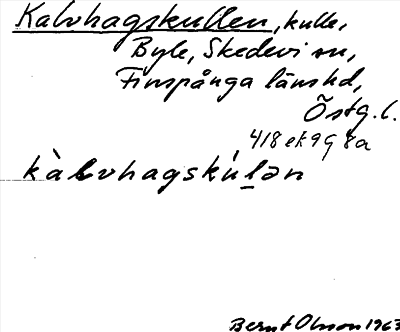 Kalvhagskullen, kulle,
Byle, Skedevi sn,
Finspånga länshd,
Östg. l.
418 ek 9 G 8a
kàlvhagskúl̠ən
Bernt Olsson 1963